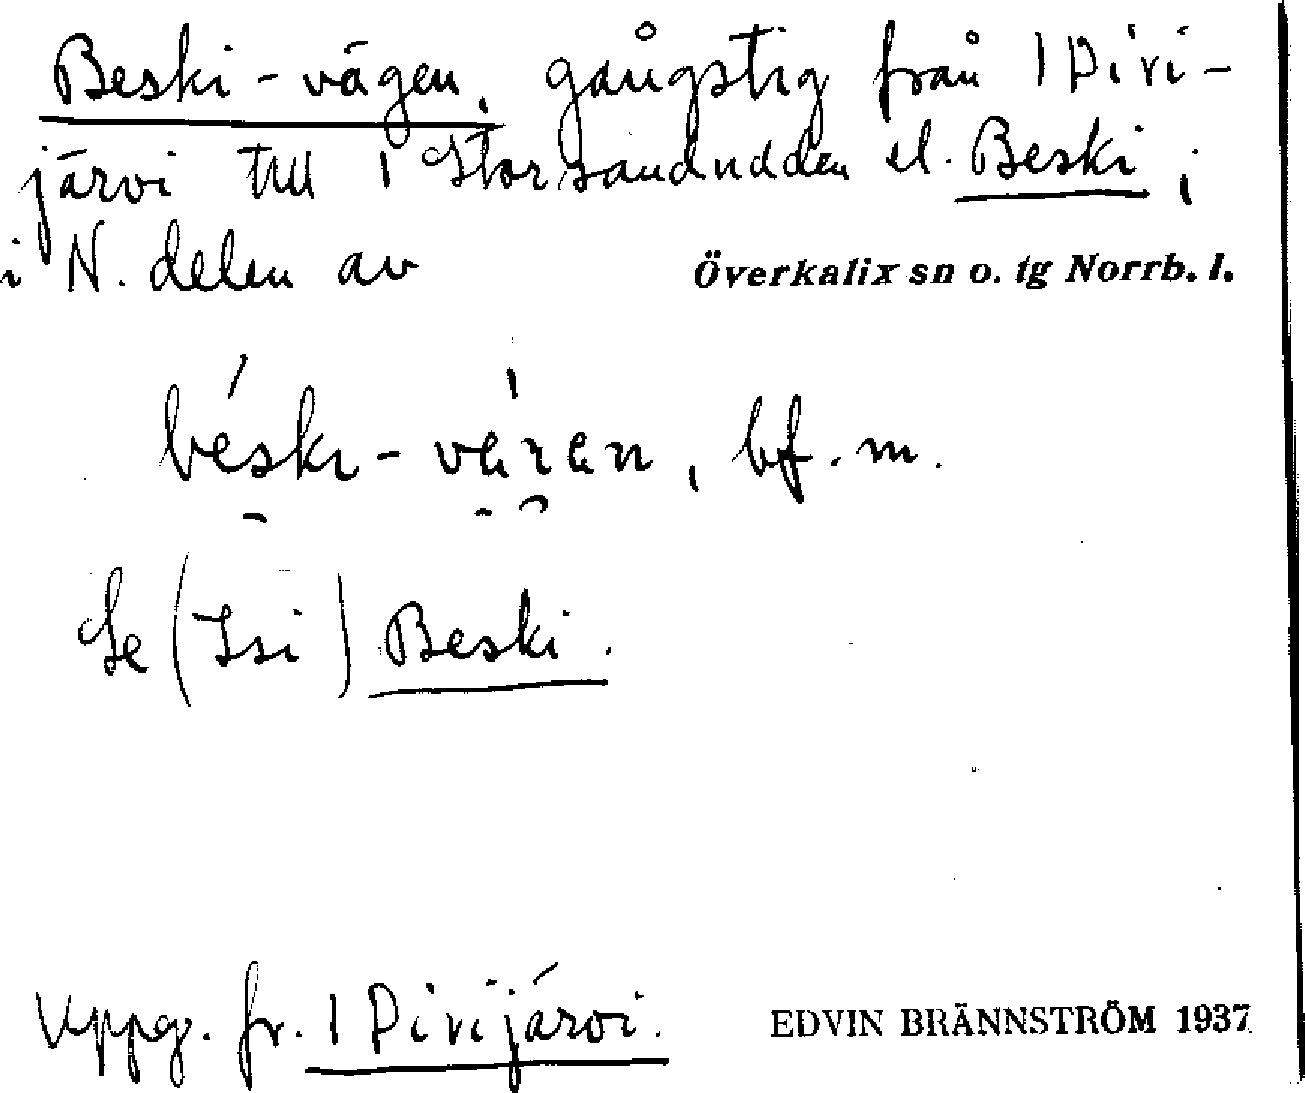 Beski-vägen, gångstig från 1 Pivi-
järvi till 1 Storsandudden el. Beski,
i N. delen av Överkalix sn o. tg Norrb. l.
béski-väran, bf. m.
Se (Isi) Beski.
Uppg. fr. 1 Pivijärvi.
EDVIN BRÄNNSTRÖM 1937